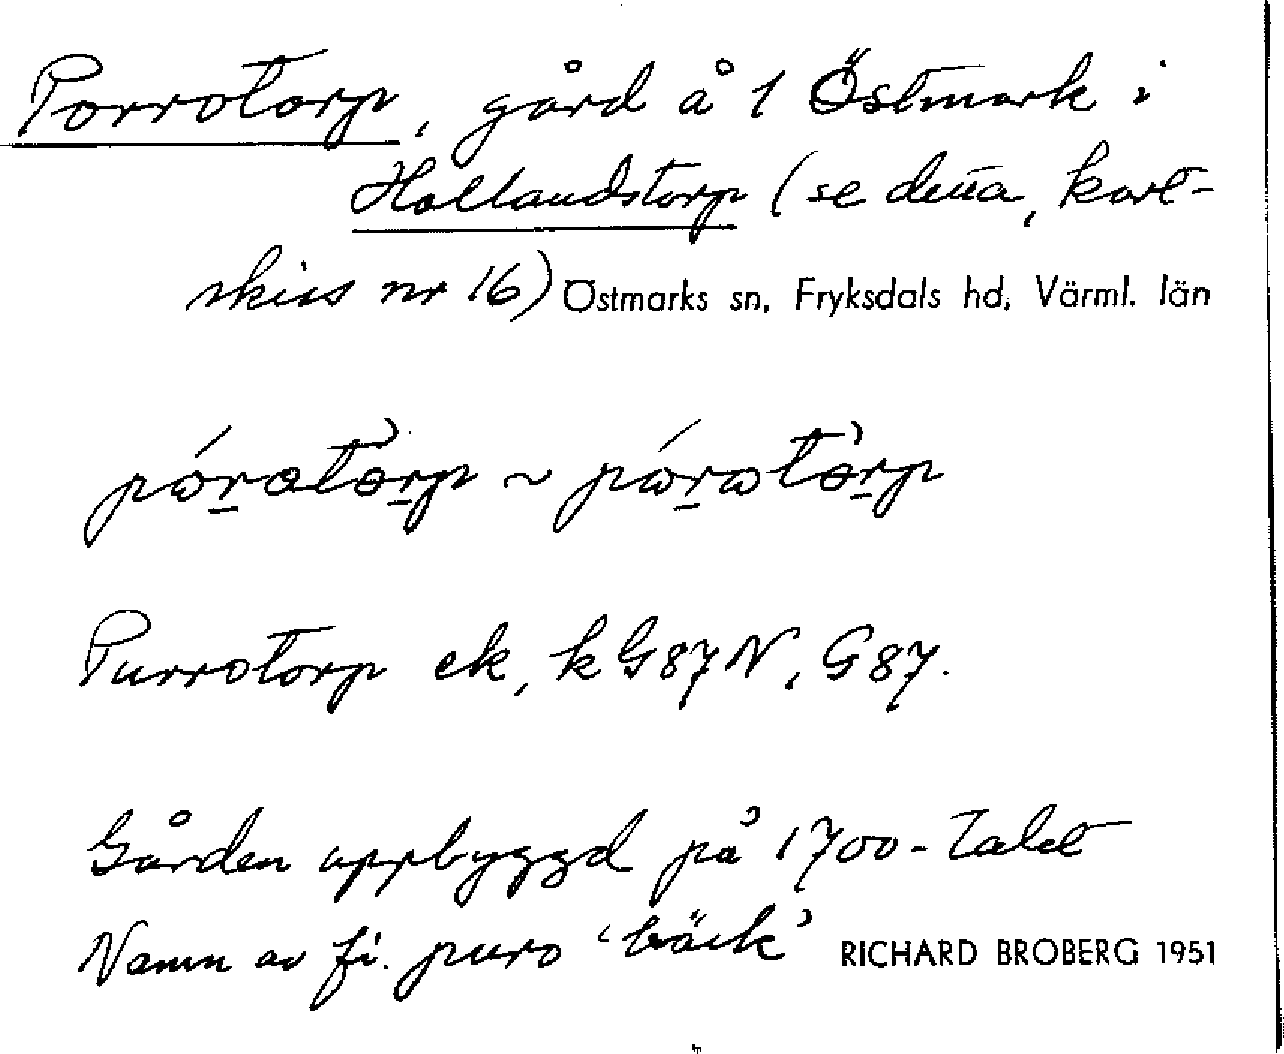 Porrotorp, gård å 1 Östmark i
Hallandstorp (se detta, kart-
skiss nr 16) Östmarks sn, Fryksdals hd, Värml. län
pɷ́rατὰrp ~ pɷ́rɷtὰrp
Purrotorp ek, k G87N, G87.
Gården uppbyggd på 1700-talet
Namn av fi. puro 'bäck' RICHARD BROBERG 1951